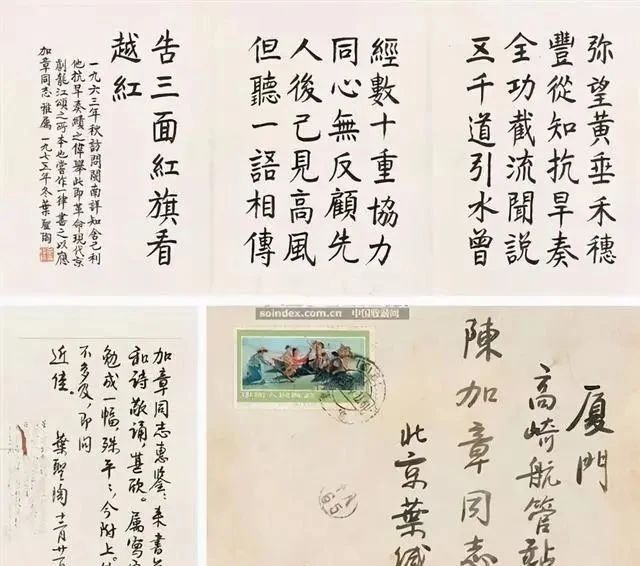 弥望黄垂禾穗
豐從知抗旱奏
全功截流聞說
五千道引水曾
經數十重協力
同心無反顧先
人後己見高風
但聽一語相傳
告三面紅旗看
越紅
一九六三年秋訪問閩南詳知舍己利
他抗旱奏績之偉舉此即革命現代京
劇龍江頌之所本也嘗作一律書之以應
加章同志雅屬 一九七五年冬葉聖陶
soindex.com.cn 中国收藏网
厦門
高崎航管站
陳加章同志
北京葉緘
加章同志惠鑒：来書
和詩敬誦，甚欣。屬寫
勉成一幅，殊平平，今附上
不多及，即問
近佳。
葉聖陶 十二月廿